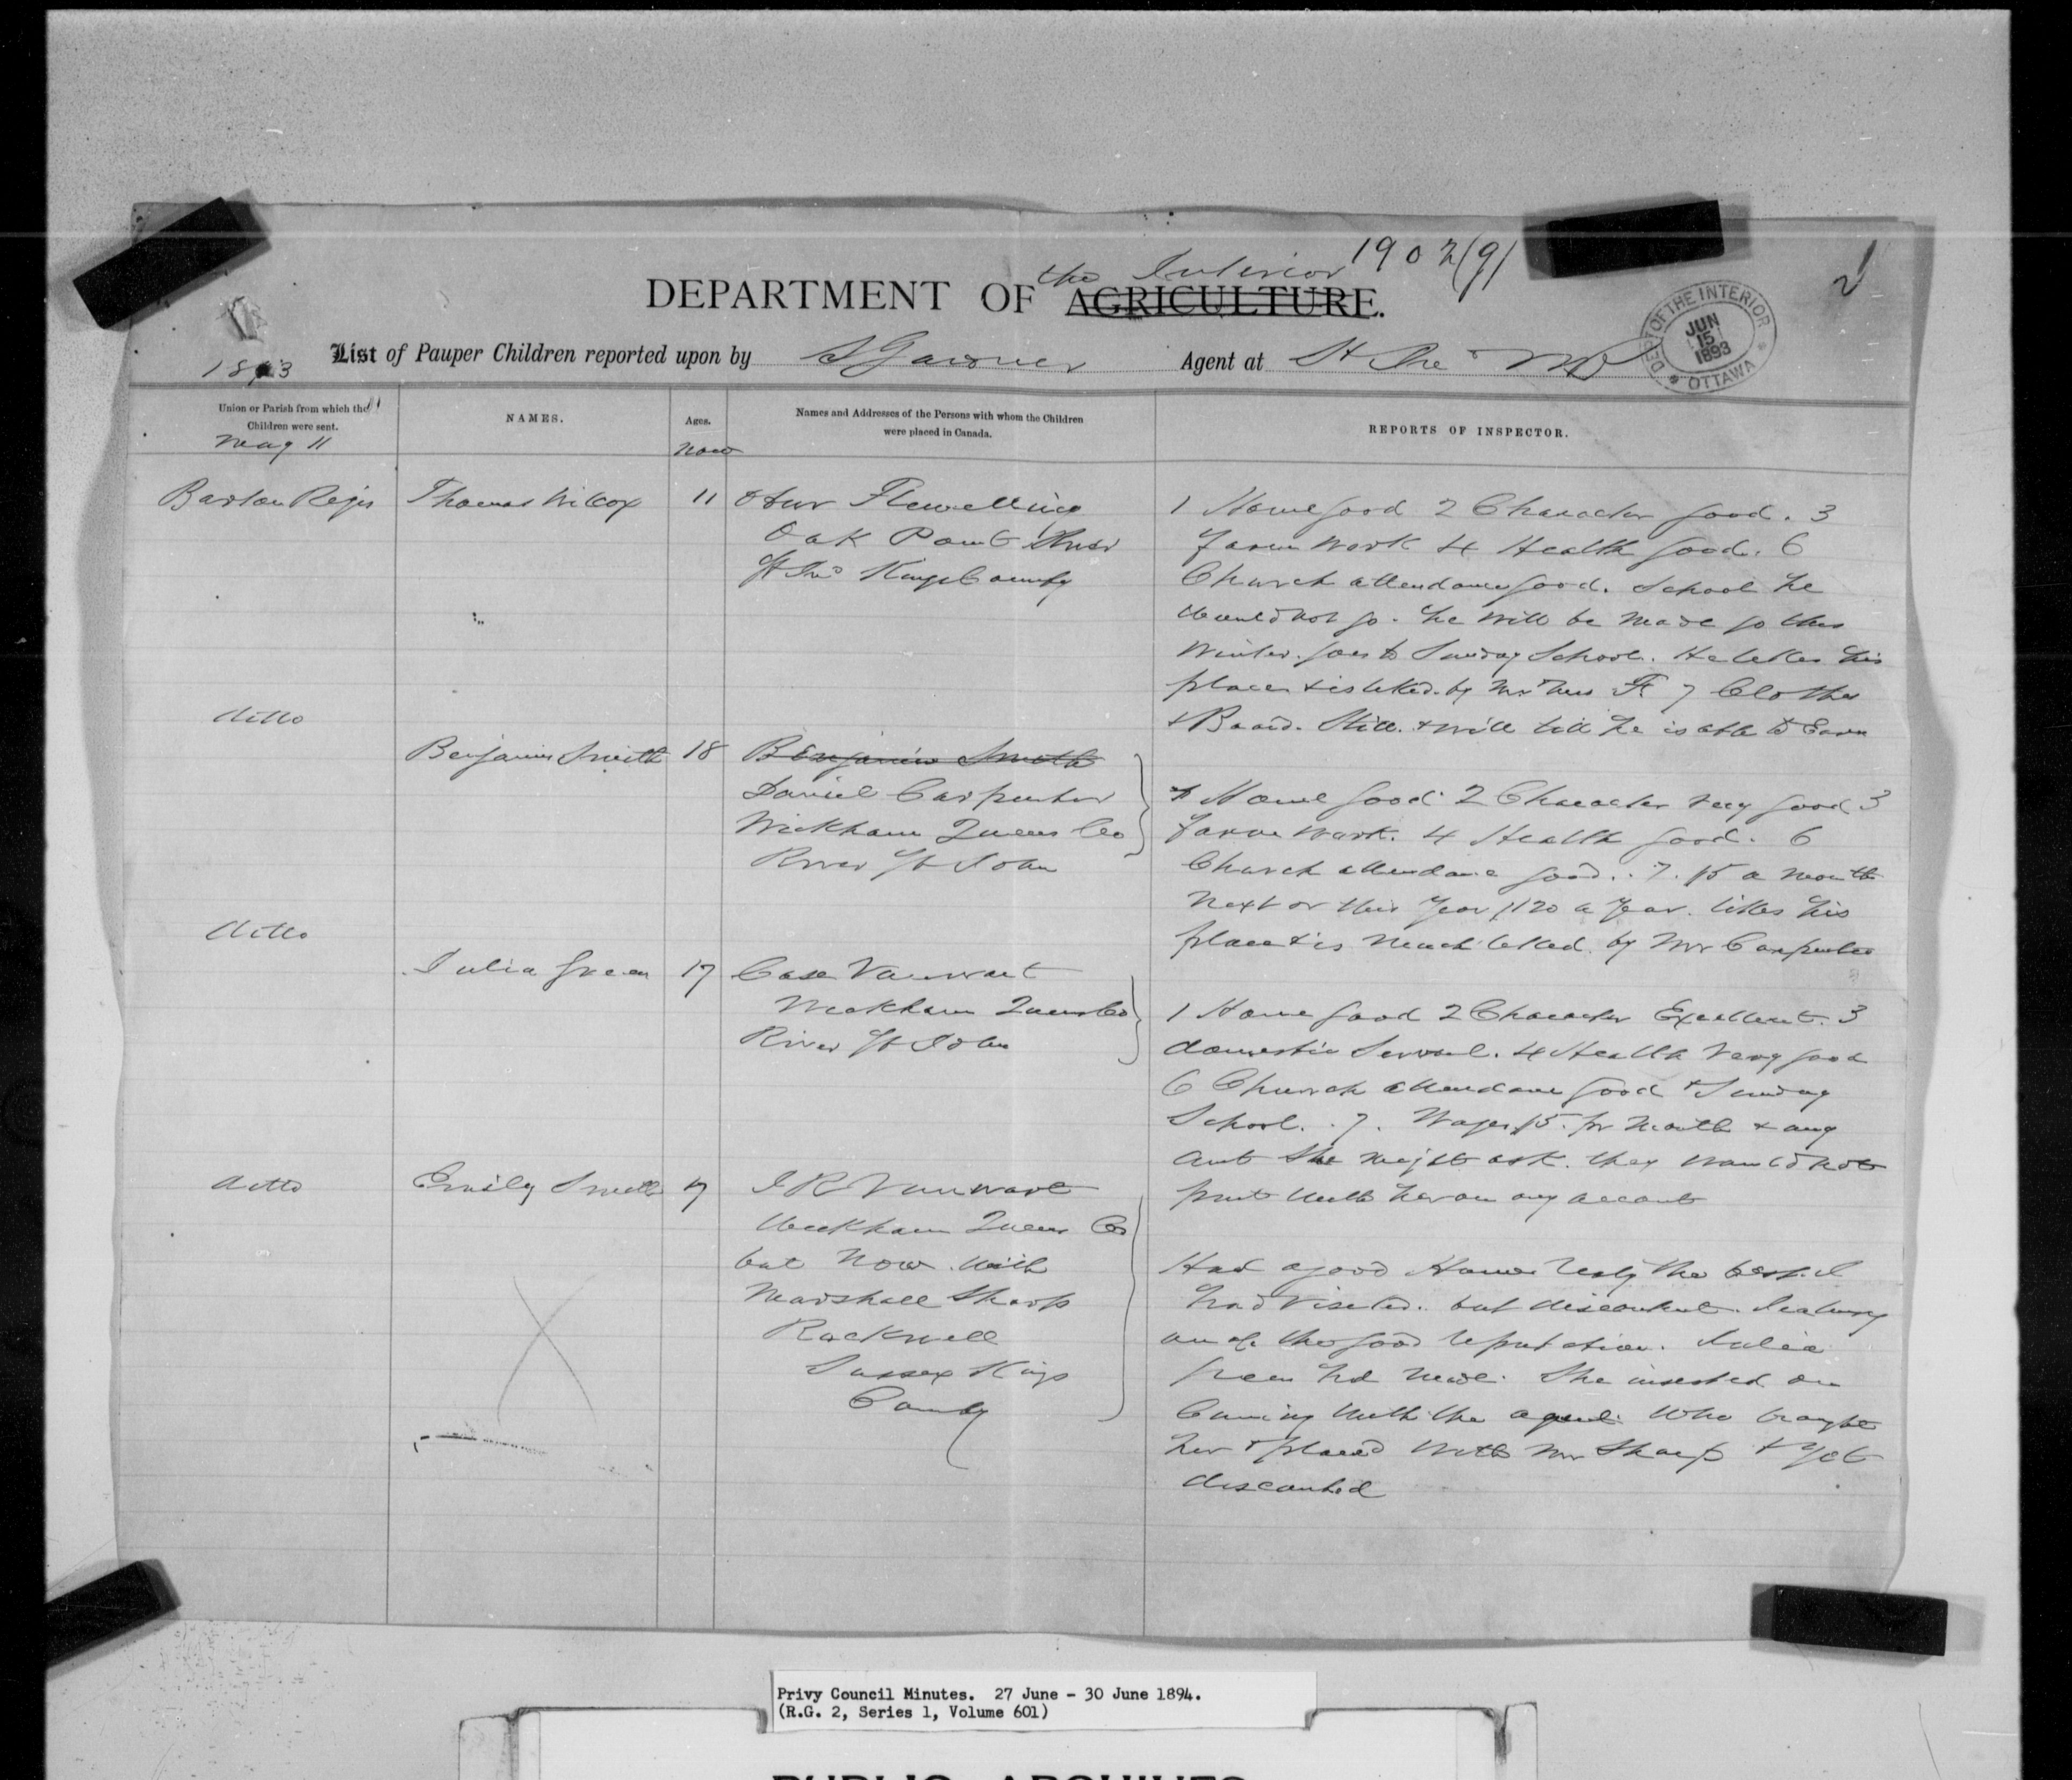 1902(9)
2
the Interior
DEPARTMENT OF AGRICULTURE.
DEPT OF THE INTERIOR
JUN
15
1893
OTTAWA
List of Pauper Children reported upon by S Gardner Agent at St Jno NB
1893
Union or Parish from which the
Children were sent.
May 11
NAMES.
Ages.
now
Names and Addresses of the Persons with whom the Children
were placed in Canada.
REPORTS OF INSPECTOR.
Barton Regis
Thomas Wilcox
11
Flewelling
Oak Point River
St Jno Kings County
1 Home good 2 Character good. 3
Farm work 4 Health good. 6
Church attendance good. School he
would not go. he will be made go this
Winter. goes to Sunday School. He likes his
place & is liked by Mr & Mrs F. 7 Clothes
& Board. Still & will till he is able to Earn
ditto
Benjamin Smith
18
Benjamin Smith
Daniel Carpenter
Wickham Queens Co
River St John
1 Home good 2 Character very good 3
Farm Work. 4 Health good. 6
Church attendance good. 7. a month
next or this year a year. likes his
place & is much liked by Mr Carpenter
ditto
Julia Green
17
Vanwart
Wickham Queens Co
River St John
1 Home good 2 Character Excellent. 3
domestic Servant. 4 Health very good
6 Church attendance good & Sunday
School. 7. Wages $5. pr month & any
amt she might ask. they would not
part with her on any account
ditto
Emily Smith
17
J R Vanwart
Wickham Queens Co
but Now with
Marshall Sharp
Sussex Kings
County
Had a good Home the best I
had visited. but discontent. Jealousy
the good reputation. Julia
Green had made. She insisted on
Coming with the agent who brought
her & placed with Mr Sharp & yet
Privy Council Minutes. 27 June - 30 June 1894.
(R.G. 2, Series 1, Volume 601)
PUBLIC ARCHIVES